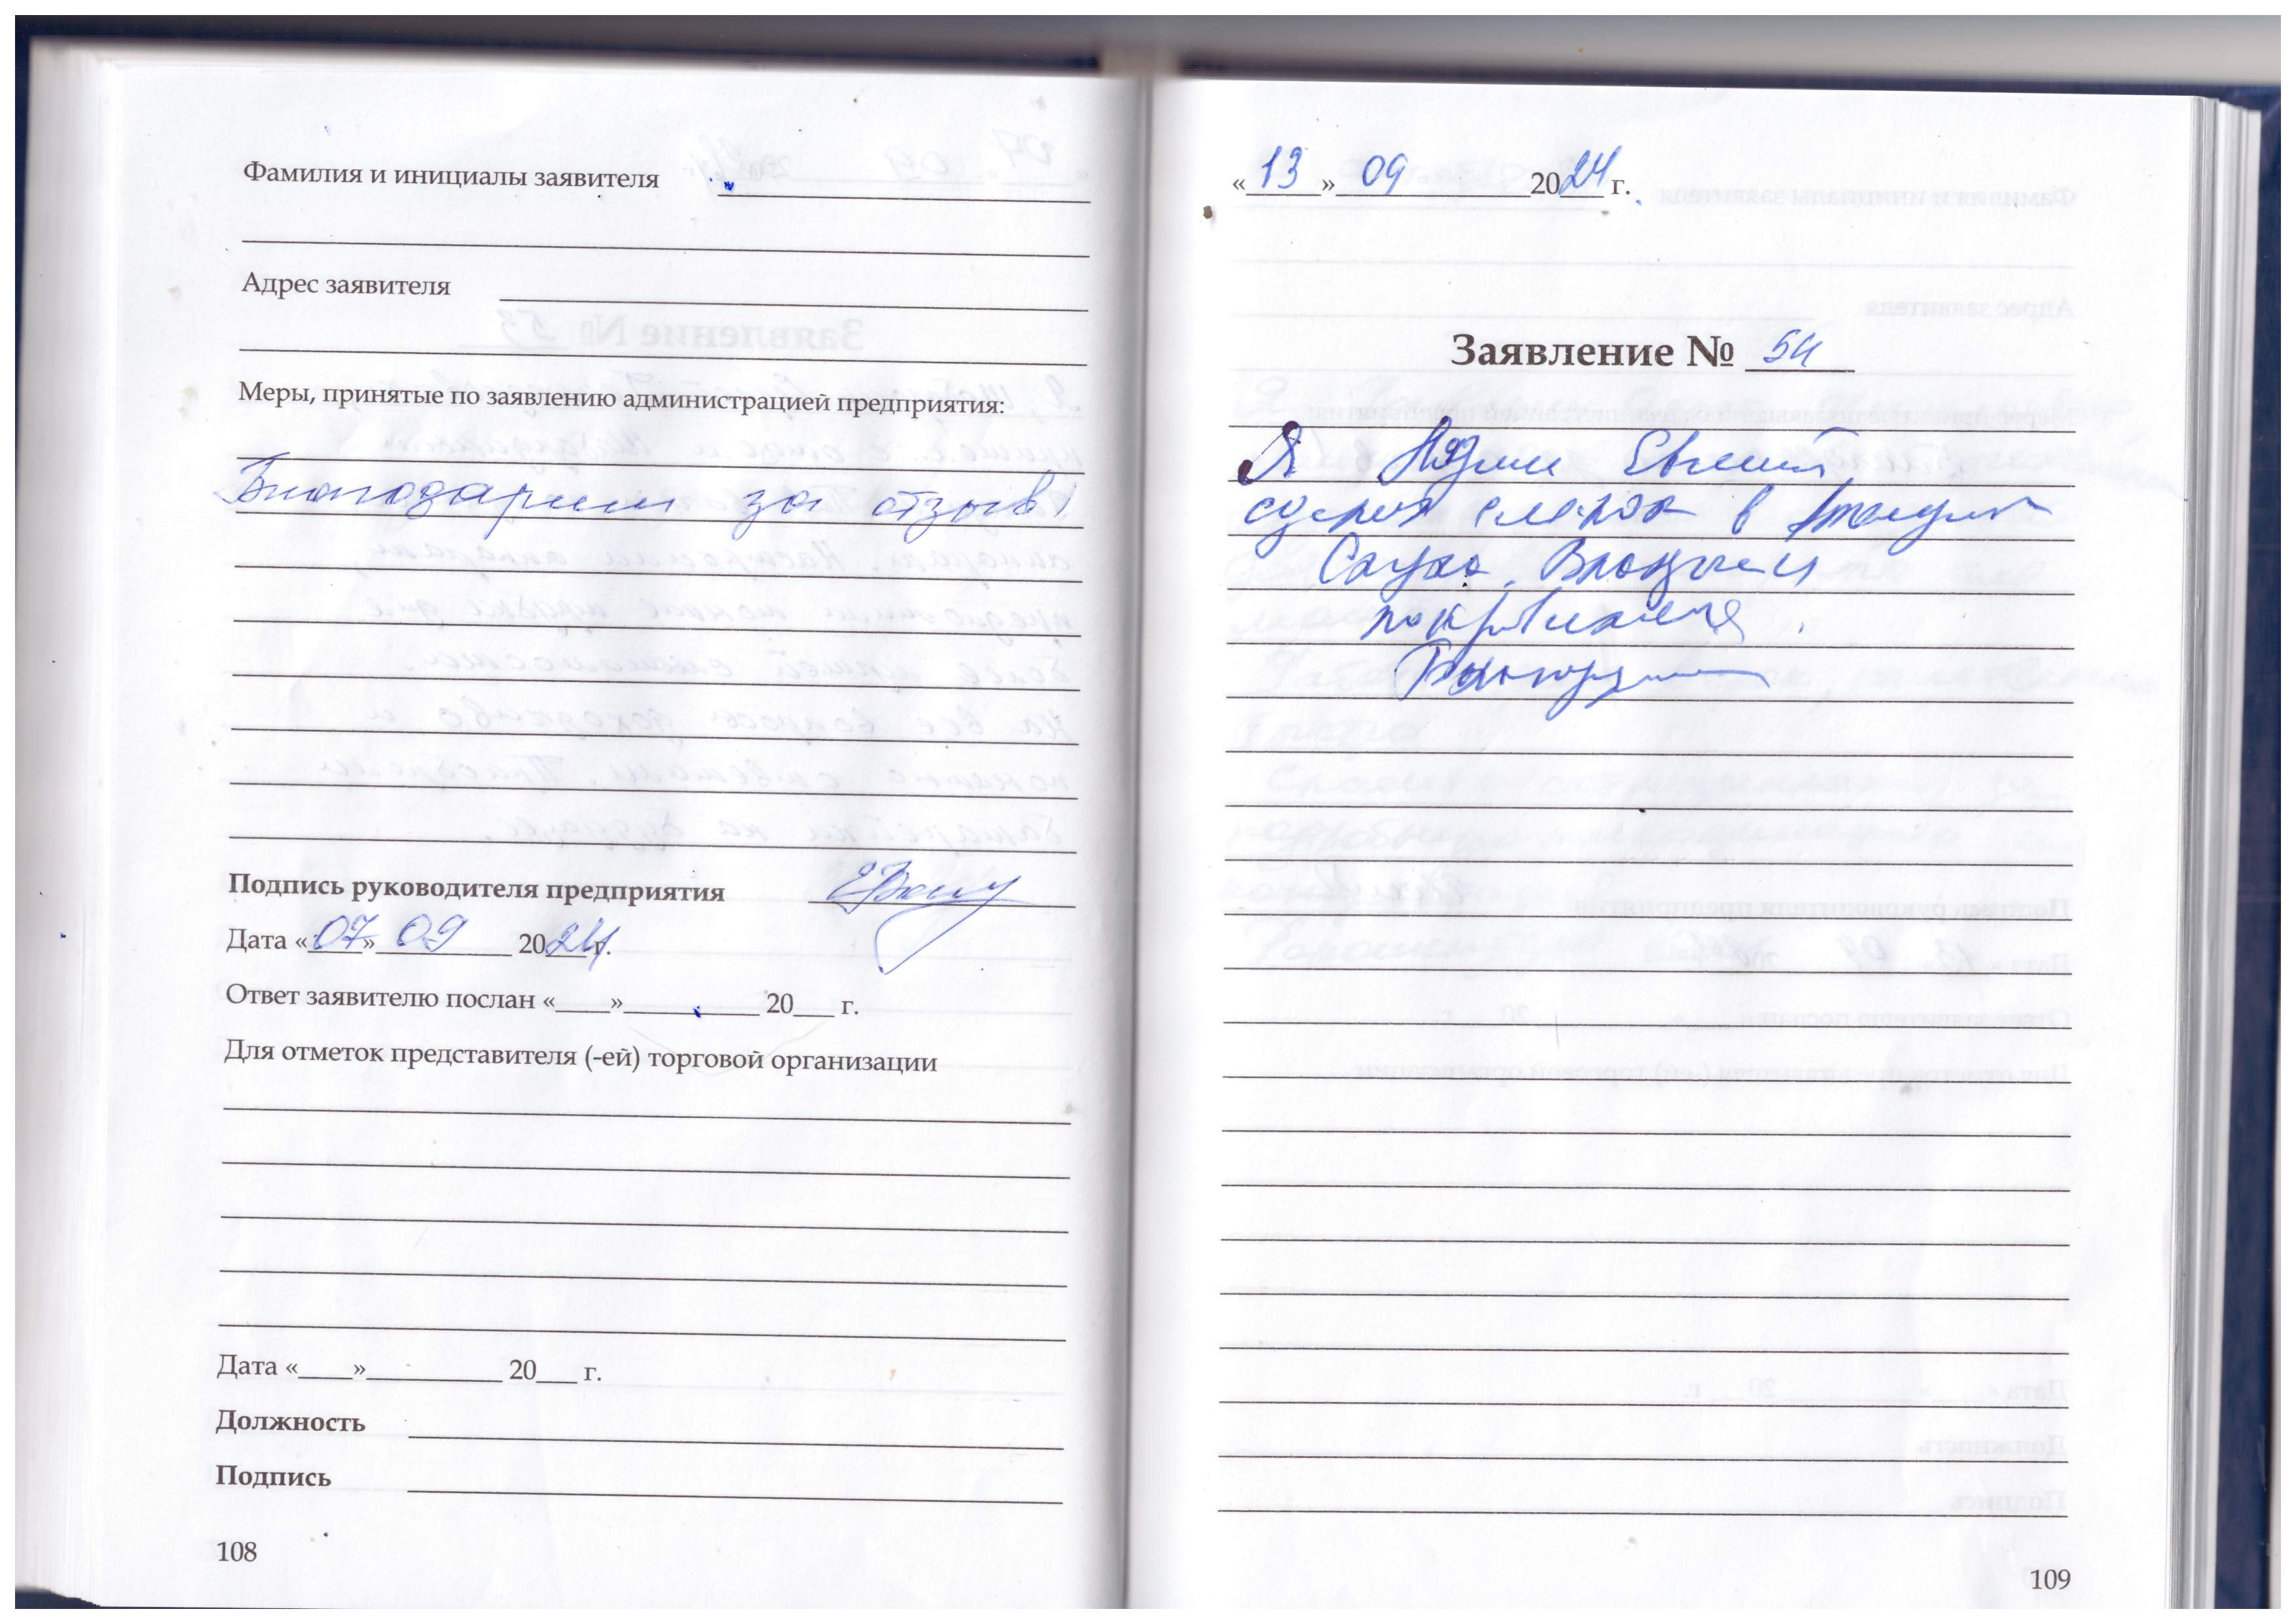 Фамилия и инициалы заявителя
Адрес заявителя
Меры, принятые по заявлению администрацией предприятия:
Благодарим за отзыв!
Подпись руководителя предприятия
Дата «07» 09 2024 г.
Ответ заявителю послан «____»__________ 20___ г.
Для отметок представителя (-ей) торговой организации
Дата «____»__________ 20___ г.
Должность
Подпись
108
«13» 09 2024 г.
Заявление № 54
Я Евгений
сделал в
покрытия.
Благодарим
109